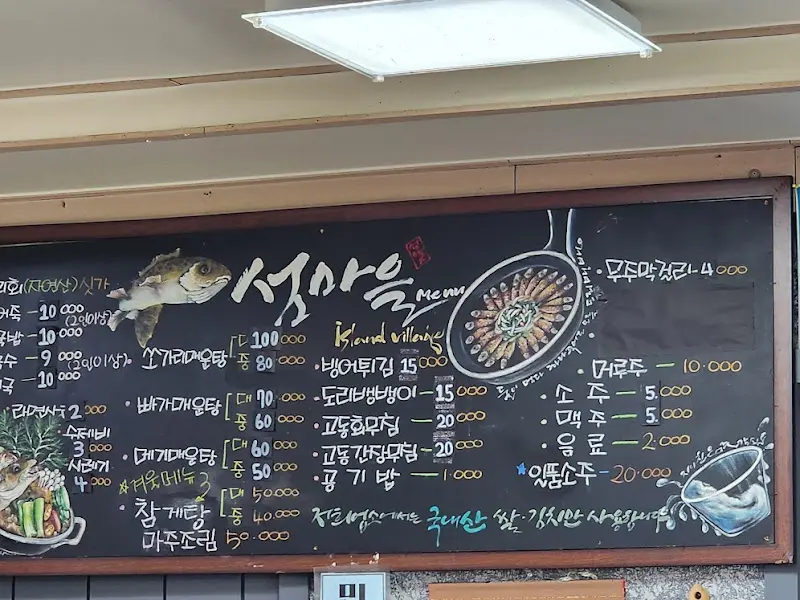 섬마을 Menu
Island village
리회(자연산) 싯가
어죽 - 10000 (2인이상)
10000
9000 (2인이상)
국 - 10000
2000
수제비 3000
시래기 4000
쏘가리매운탕 대 100000
중 80000
빠가매운탕 대 70000
중 60000
메기매운탕 대 60000
중 50000
★겨울메뉴
참게탕 대 50.000
중 40.000
마주조림 50.000
뱅어튀김 15000
도리뱅뱅이 - 15000
고동회무침 - 20000
고동간장무침 - 20000
공기밥 - 1.000
무주막걸리 - 4000
머루주 - 10.000
소주 - 5.000
맥주 - 5.000
음료 - 2.000
★일품소주 - 20.000
저희업소에서는 국내산 쌀·김치만 사용합니다